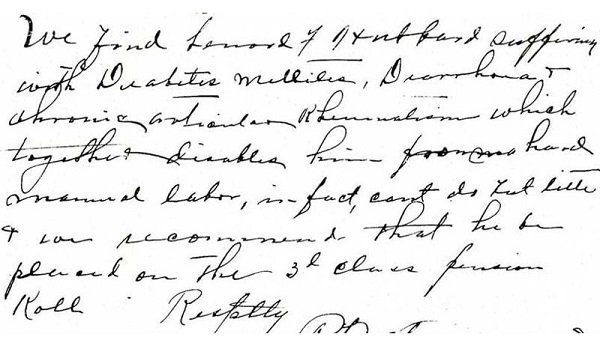 We find Lenard J Hubbard suffering
with Diabetes Mellites, Diarrhoea &
chronic articular Rheumatism which
together disables him from hard
manual labor, in fact, cant do but little
& we recommend that he be
placed on the 3d class pension
Roll Respttly